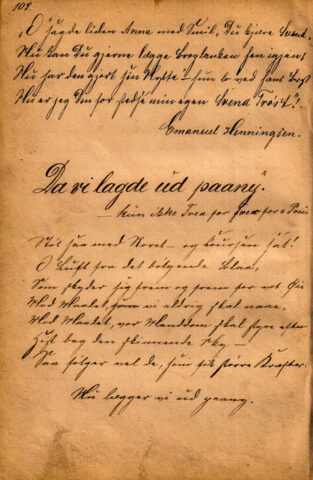 109
"O sagde liden Anna med Smil, Du kjære Svend
Nu kan Du gjerne lægge Brogtanken hen igjen
Nu har den gjort sin Nytte — hun lo ved hans Bryst
Nu er jeg Din for stedse min egen Svend Trøst".
Emanuel Henningsen.
"Da vi lagde ud paany".
— Kun ikke Træa for
Støt saa med Roret — og Coursen sat!
O Luft fra det bølgende Blaa,
Som skyder sig frem og frem for vor
Mod Maalet, som vi aldrig skal naae,
Mod Maalet, vor Manddom skal styre efter
Hist bag den skinnende Sky —
Saa følger vel de, som fik større Kræfter.
Nu lægger vi ud paany.